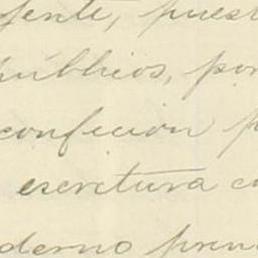 ente, puest
públicos, por
confección p
escritura co
derno pren